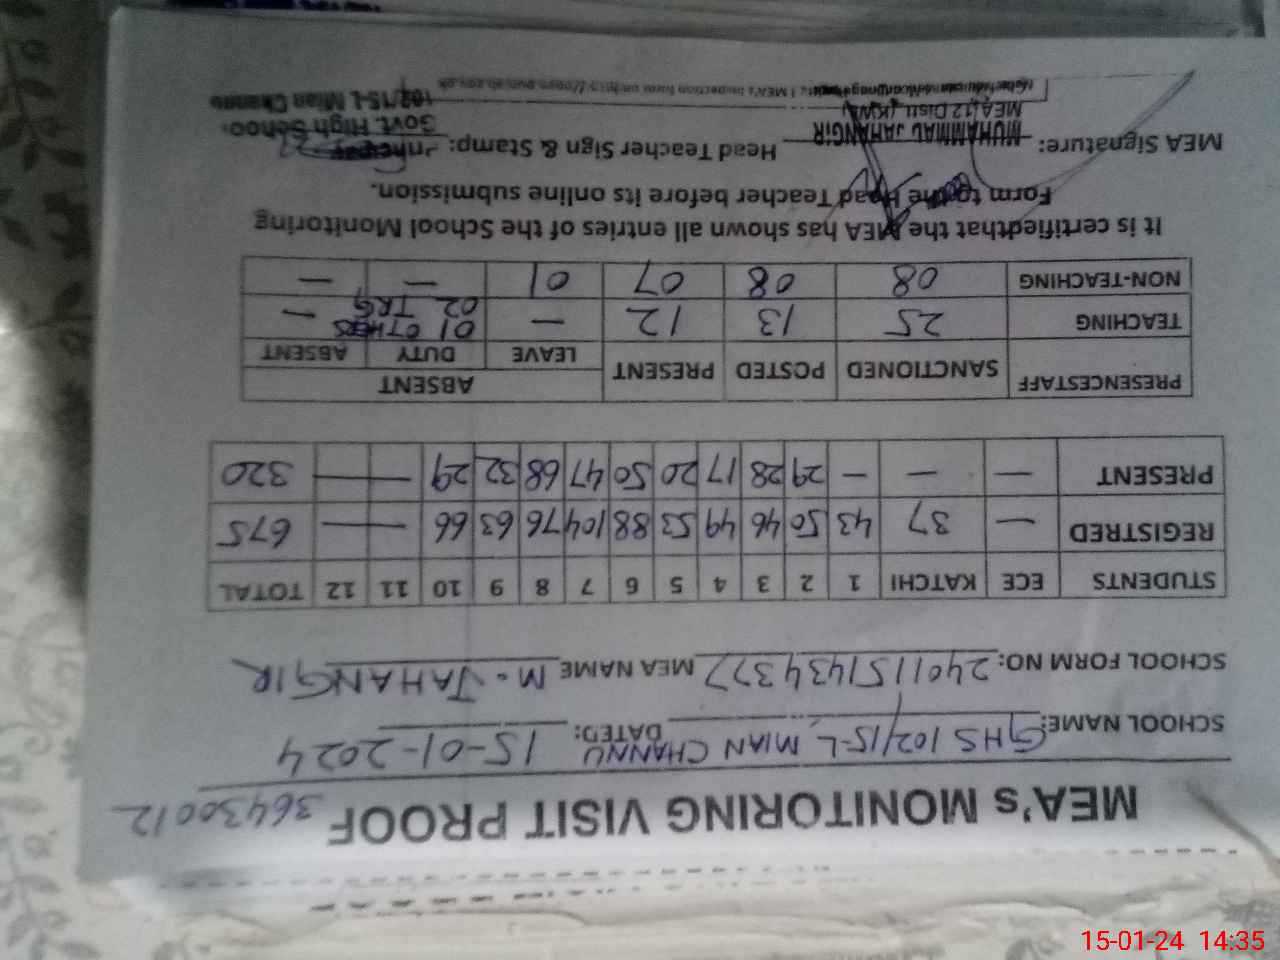 MEA's MONITORING VISIT PROOF 36430012
SCHOOL NAME: GHS 102/15-L MIAN CHANNU DATED: 15-01-2024
SCHOOL FORM NO: 2401151434377 MEA NAME M. JAHANGIR
STUDENTS ECE KATCHI 1 2 3 4 5 6 7 8 9 10 11 12 TOTAL
REGISTRED — 37 43 50 46 49 53 88 104 76 63 66 — — 675
PRESENT — — — 29 28 17 20 50 47 68 32 29 — — 320
PRESENCESTAFF SANCTIONED POSTED PRESENT ABSENT
LEAVE DUTY ABSENT
TEACHING 25 13 12 — 01 OTHERS 02 TRG —
NON-TEACHING 08 08 07 01 — —
It is certifiedthat the MEA has shown all entries of the School Monitoring
Form to the Head Teacher before its online submission.
MEA Signature: MUHAMMAD JAHANGIR Head Teacher Sign & Stamp:
MEA,12 Distt. (KWL) Govt. High School
102/15-L Mian Channu
15-01-24 14:35